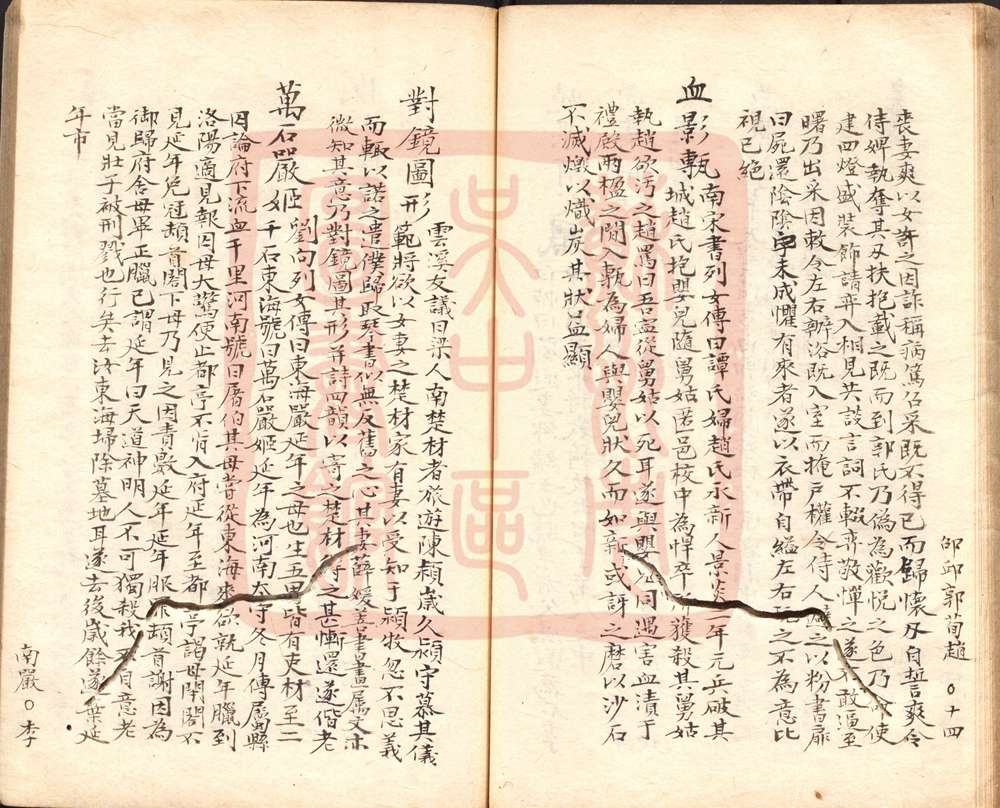 邙邱郭荀趙 〇十四
喪妻爽以女許之因詐稱病篤召采既不得已而歸懷刄自誓爽令
侍婢執奪其刄扶抱載之既而到郭氏乃偽為歡悅之色乃使
建四燈盛裝飾請弈入相見共談言詞不輟弈敬憚之遂不敢逼至
曙乃出采因敕令左右辦浴既入室而掩戶權令侍人之以粉書扉
曰屍還陰陰字未成懼有來者遂以衣帶自縊左右玩之不為意比
視已絕
血影甎
南宋書列女傳曰譚氏婦趙氏永新人景炎二年元兵破其
城趙氏抱嬰兒隨舅姑匿邑校中為悍卒所獲殺其舅姑
執趙欲汚之趙罵曰吾寧從舅姑以死耳遂與嬰兒同遇害血漬于
禮殿兩楹之間入甎為婦人與嬰兒狀久而如新或訝之磨以沙石
不滅燬以熾炭其狀益顯
對鏡圖形
雲溪友議曰梁人南楚材者旅遊陳潁歲久潁守慕其儀
範將欲以女妻之楚材家有妻以受知于潁牧忽不思義
而輒以諾之遣僕歸取琴書似無反舊之心其妻薛媛善書畫屬文亦
微知其意乃對鏡圖其形并詩四韻以寄之楚材得之甚慚還遂偕老
萬石嚴姬
劉向列女傳曰東海嚴延年之母也生五男皆有吏材至二
千石東海號曰萬石嚴姬延年為河南太守冬月傳屬縣
囚論府下流血千里河南號曰屠伯其母嘗從東海來欲就延年臘到
洛陽適見報囚母大驚便止都亭不肯入府延年至都亭謁母閉閤不
見延年免冠頓首閤下母乃見之因責數延年延年服罪頓首謝因為
御歸府舍母畢正臘已謂延年曰天道神明人不可獨殺我不自意老
當見壯子被刑戮也行矣去汝東海埽除墓地耳遂去後歲餘遂棄延
年市
南嚴〇李